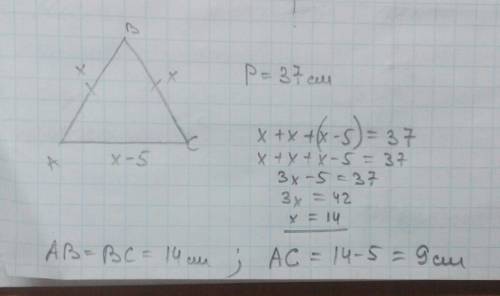 B
x x
P = 37 см
A x-5 C
x + x + (x-5) = 37
x + x + x - 5 = 37
3x - 5 = 37
3x = 42
x = 14
AB = BC = 14 см ; AC = 14 - 5 = 9 см